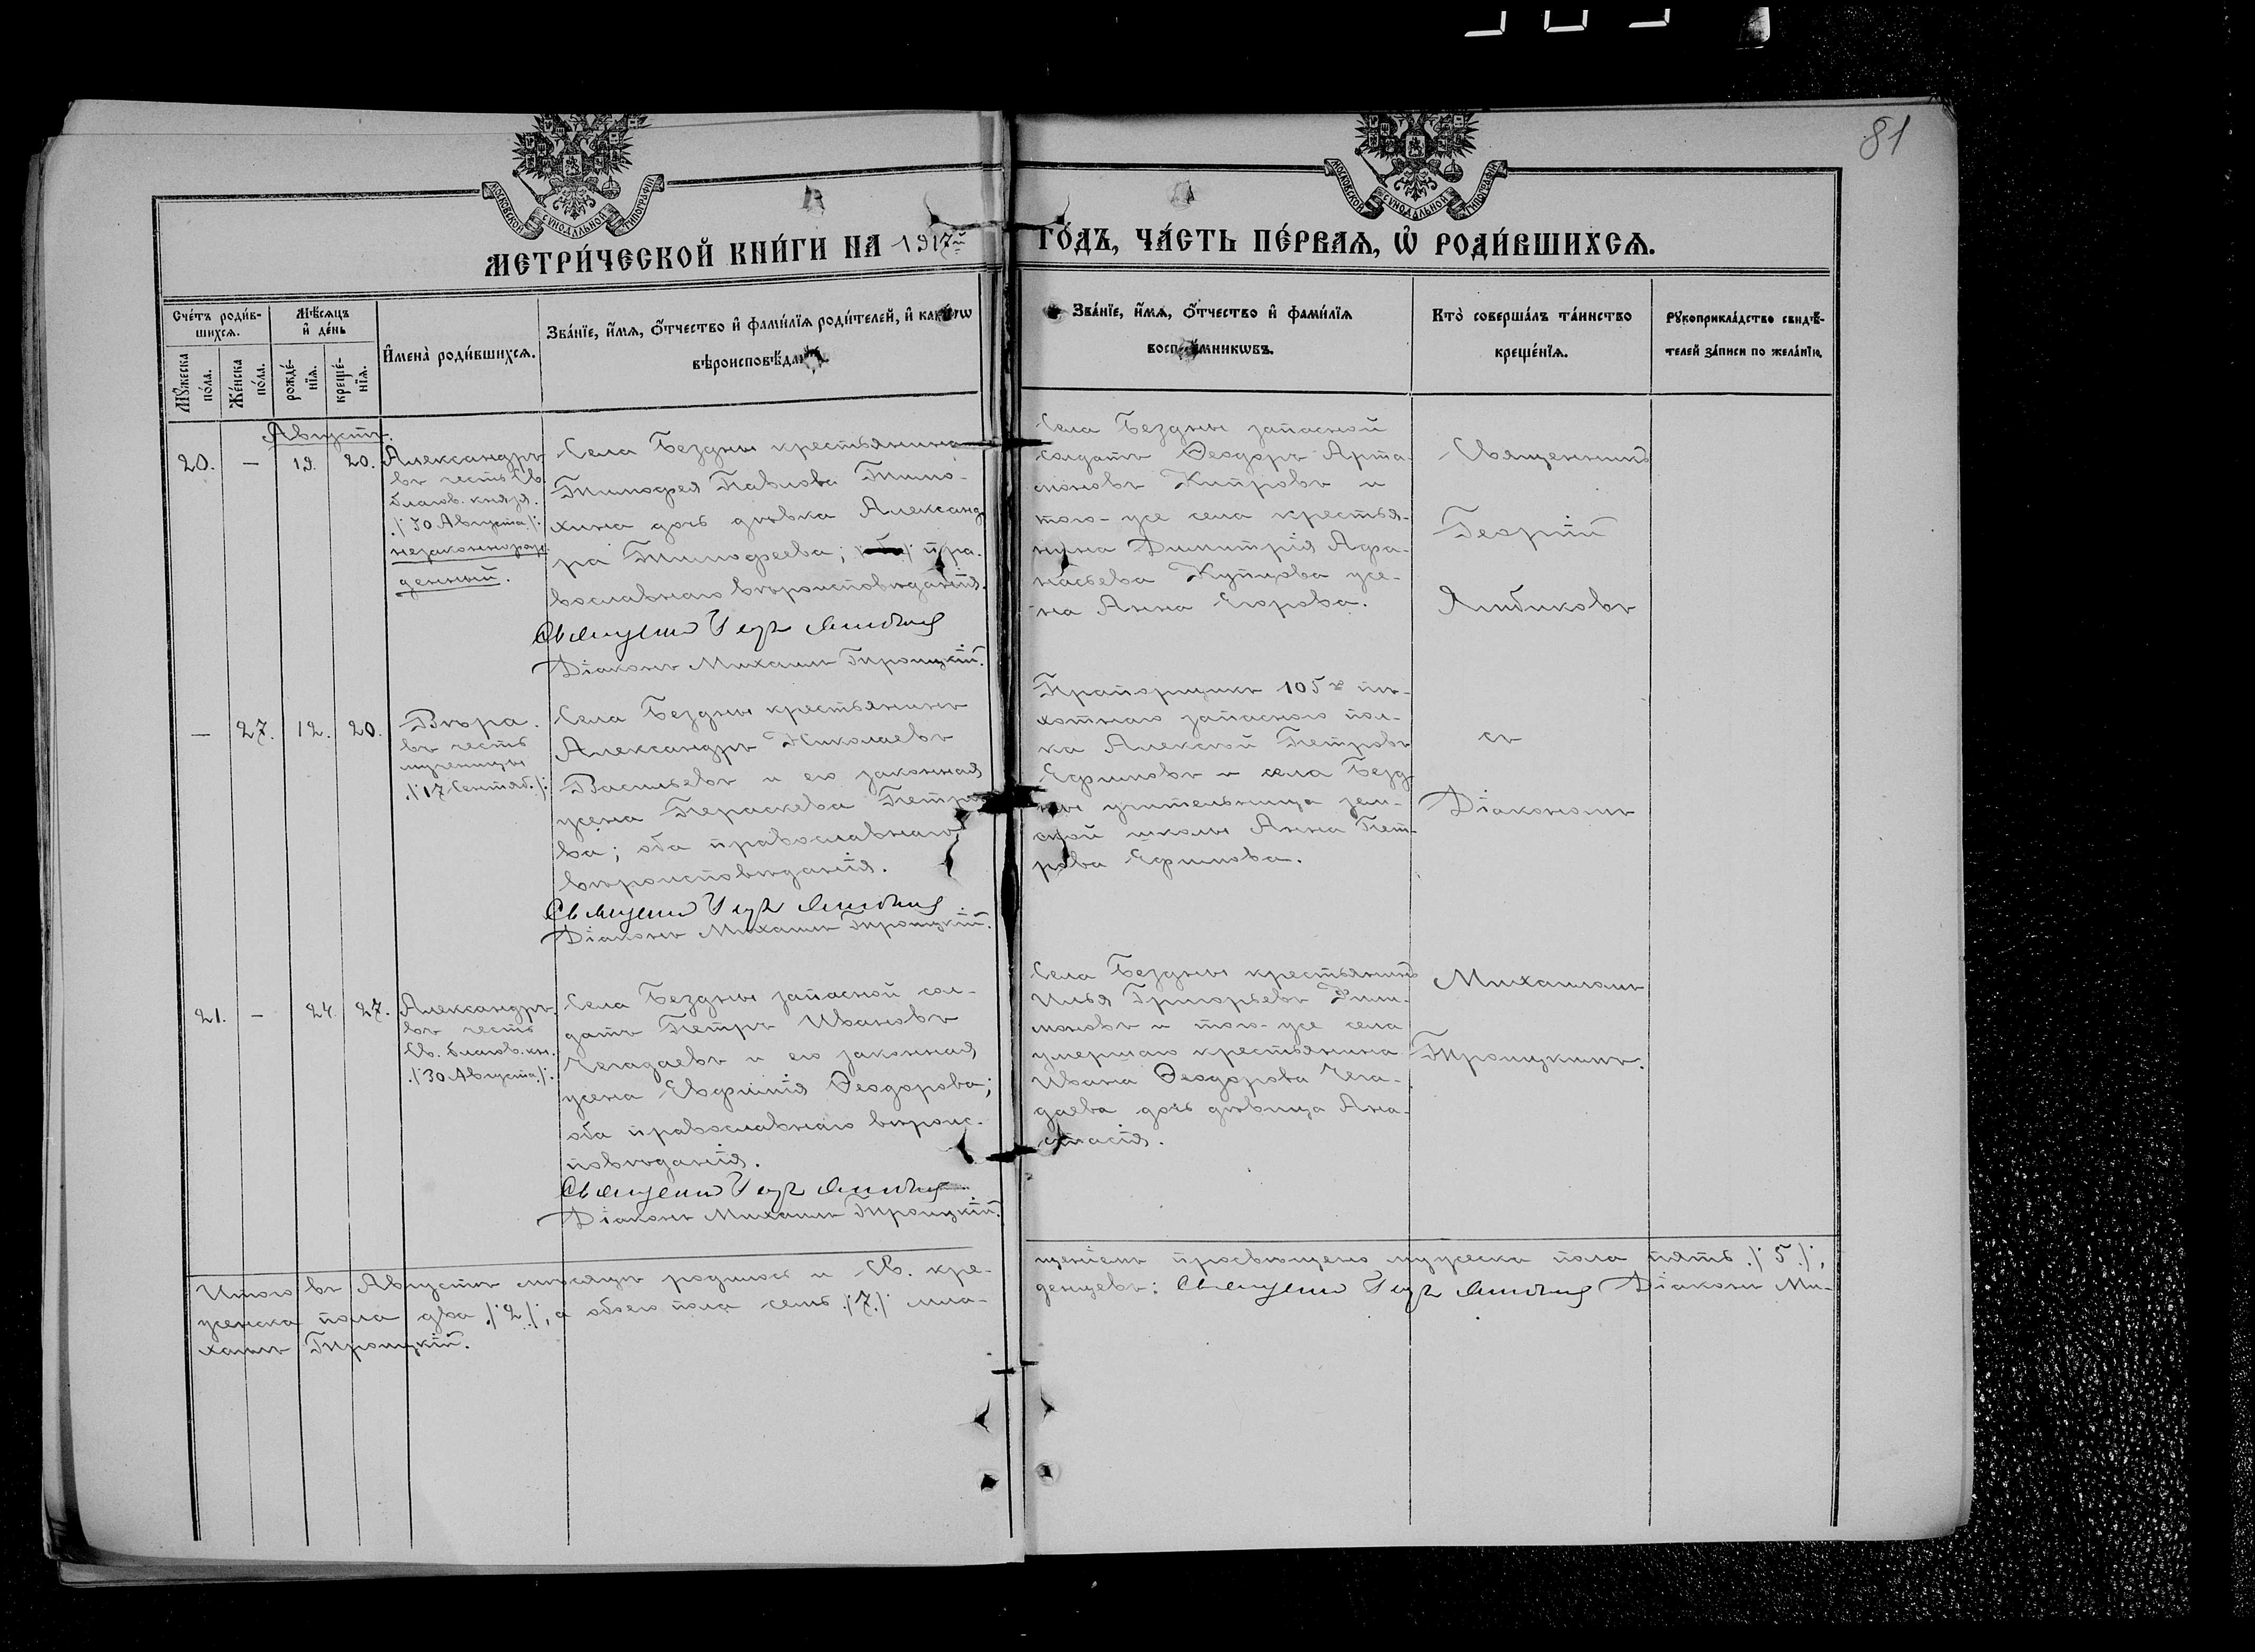 81
МОСКОВСКОЙ СУНОДАЛЬНОЙ ТИПОГРАФІИ
МОСКОВСКОЙ СУНОДАЛЬНОЙ ТИПОГРАФІИ
МЕТРИ́ЧЕСКОЙ КНИ́ГИ НА 1917й ГО́ДЪ, ЧА́СТЬ ПЕ́РВАЯ, Ѡ РОДИ́ВШИХСЯ.
Сче́тъ роди́в-
шихся.
Му́жеска
по́ла.
Же́нска
по́ла.
Мѣ́сяцъ
и де́нь
рожде́-
нїя.
креще́-
нїя.
Имена̀ роди́вшихся.
Зва́нїе, и́мя, о́тчество и фами́лїя роди́телей, и како́гѡ
вѣроисповѣ́данїя.
Зва́нїе, и́мя, о́тчество и фами́лїя
воспрїе́мникѡвъ.
Кто̀ соверша́лъ та́инство
креще́нїя.
Рукоприкла́дство свидѣ́-
телей за́писи по жела́нїю.
Августъ.
20.
—
19.
20.
Александръ
въ честь Св.
благов. князя.
/:30 Августа:/
незаконнорож-
денный.
Села Бездны крестьянина
Тимофея Павлова Тимо-
хина дочь дѣвка Александ-
ра Тимофеева; пра-
вославнаго вѣроисповѣданія.
Діаконъ Михаилъ Троицкій.
Села Бездны запасной
солдатъ Ѳеодоръ Арта-
моновъ Китровъ и
того-же села крестья-
нина Димитрія Афа-
насьева Купцова же-
на Анна Егорова.
Священникъ
Георгій
Ялбиковъ
—
27.
12.
20.
Вѣра.
въ честь
мученицы
/:17 Сентяб.:/
Села Бездны крестьянинъ
Александръ Николаевъ
Васильевъ и его законная
жена Параскева Петро-
ва; оба православнаго
вѣроисповѣданія.
Діаконъ Михаилъ Троицкій.
Прапорщикъ 105го пѣ-
хотнаго запаснаго пол-
ка Алексѣй Петровъ
Ефимовъ и села Безд-
ны учительница зем-
ской школы Анна Пет-
рова Ефимова.
съ
Діакономъ
21.
—
24.
27.
Александръ.
въ честь
Св. благов. кн.
/:30 Августа:/
Села Бездны запасной сол-
датъ Петръ Ивановъ
Чегадаевъ и его законная
жена Евфимія Ѳеодорова;
оба православнаго вѣроис-
повѣданія.
Діаконъ Михаилъ Троицкій.
Села Бездны крестьянинъ
Илья Григорьевъ
и того-же села
умершаго крестьянина
Ивана Ѳеодорова Чега-
даева дочь дѣвица Ана-
стасія.
Михаиломъ
Троицкимъ.
Итого въ Августѣ мѣсяцѣ родилось и Св. кре-
щеніемъ просвѣщено мужеска пола пять /:5:/,
женска пола два /:2:/, а обоего пола семь /:7:/ мла-
денцевъ: Діаконъ Ми-
хаилъ Троицкій.